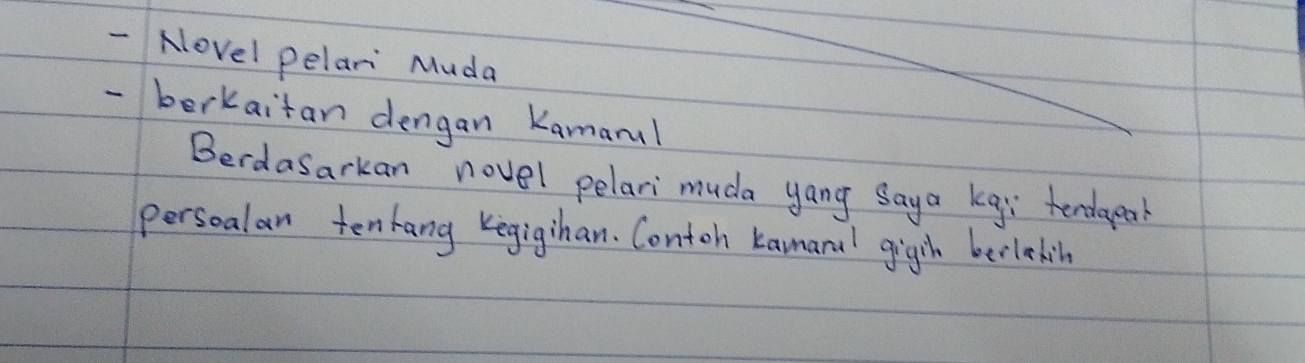 - Novel Pelari Muda
- berkaitan dengan Kamarul
Berdasarkan novel pelari muda yang saya kaji terdapat
persoalan tentang kegigihan. Contoh kamarul gigih berlatih